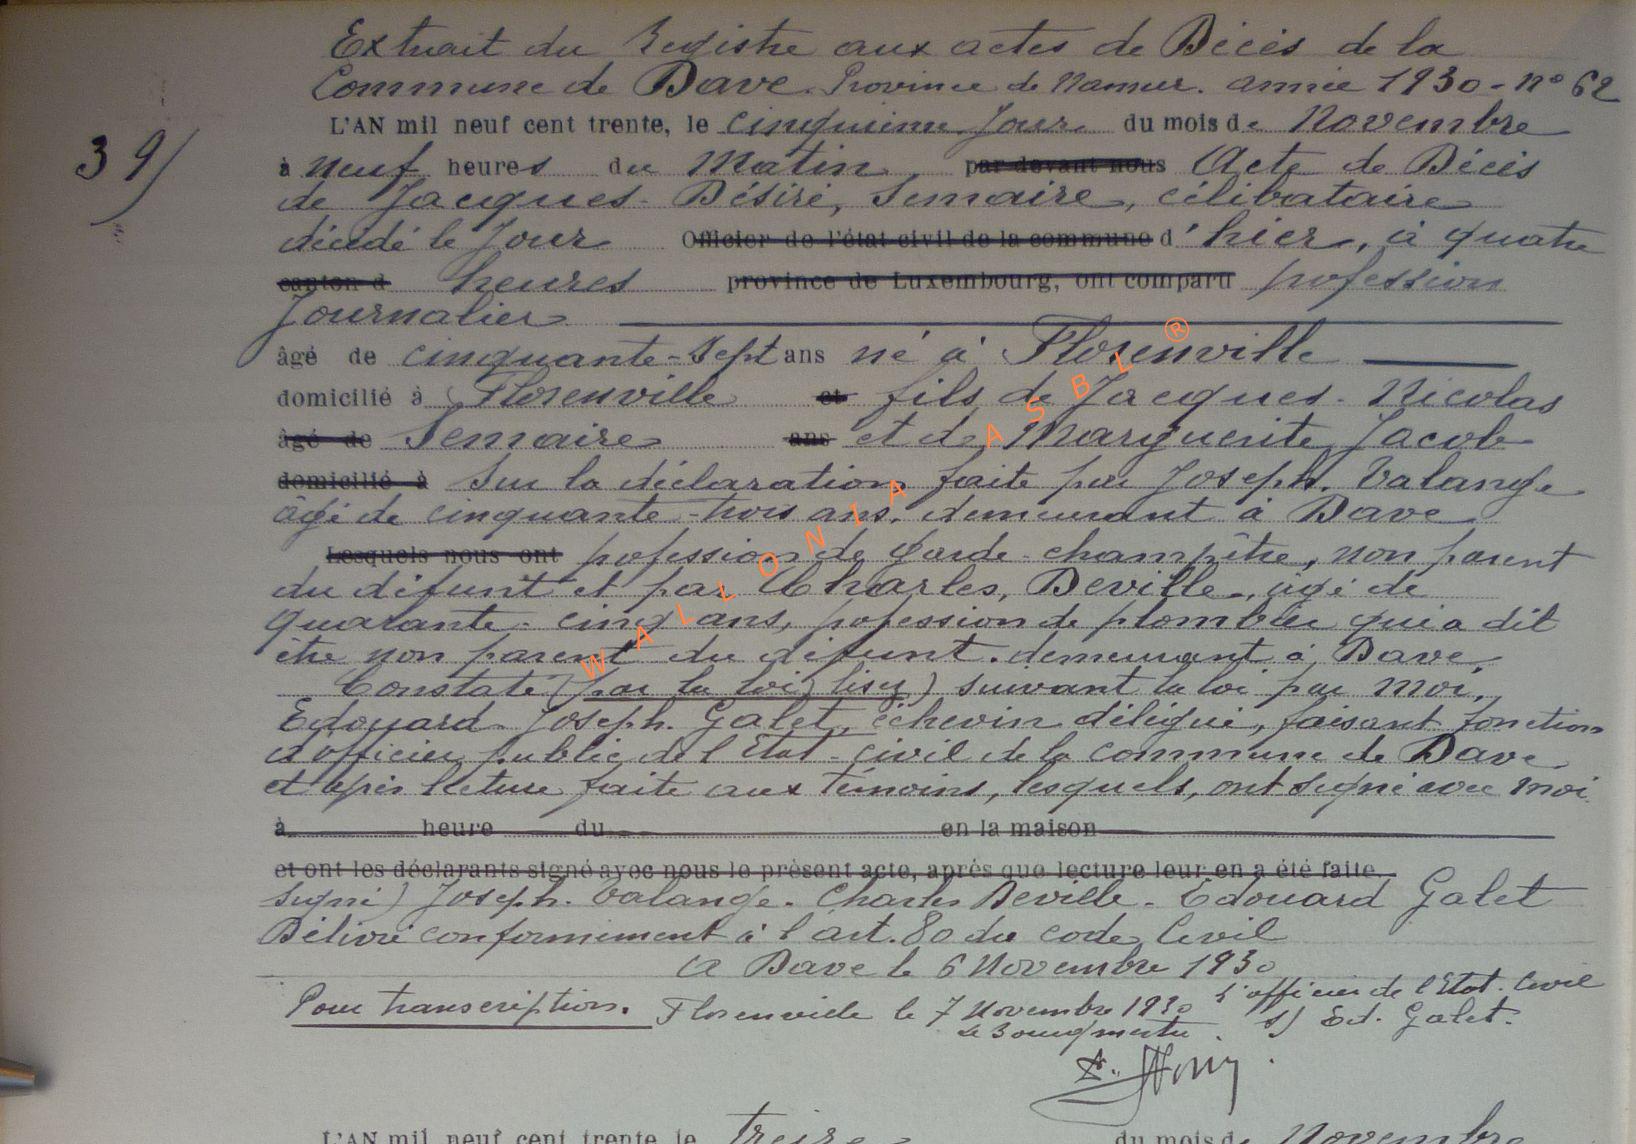 Extrait du Registre aux actes de Décès de la
Commune de Dave. Province de Namur. année 1930 - n° 62
39/
L'AN mil neuf cent trente, le cinquième Jour du mois de Novembre
à neuf heures du Matin par devant nous Acte de Décès
de Jacques-Désiré, Semaire, célibataire
décédé le Jour Officier de l'état civil de la commune d'hier, à quatre
canton d heures province de Luxembourg, ont comparu pofession
Journalier
âgé de cinquante-sept ans né à Florenville
domicilié à Florenville et fils de Jacques-Nicolas
âgé de Semaire ans et de Marguerite, Jacob
domicilié à Sur la déclaration faite par Joseph. Valange
âgé de cinquante-trois ans. demeurant à Dave
Lesquels nous ont pofession de garde-champêtre, non parent
du défunt et par Charles, Deville, âgé de
quarante-cinq ans, pofession de plombier qui a dit
être non parent du défunt. demeurant à Dave.
Constaté (par la loi) lisez) suivant la loi par moi,
Edouard-Joseph. Galet, échevin délégué, faisant fonctions
d'officier public de l'Etat-civil de la commune de Dave
et après lecture faite aux témoins, lesquels, ont signé avec moi.
à heure du en la maison
et ont les déclarants signé avec nous le présent acte, après que lecture leur en a été faite.
signé) Joseph. Valange. Charles Deville. Edouard Galet
Délivré conformément à l'art. 80 du code Civil
A Dave le 6 Novembre 1930
L'officier de l'Etat-Civil
Pour transcription. Florenville le 7 Novembre 1930 s/ Ed. Galet.
Le Bourgmestre.
L'AN mil neuf cent trente le treize du mois de Novembre
WALLONIA ASBL ®